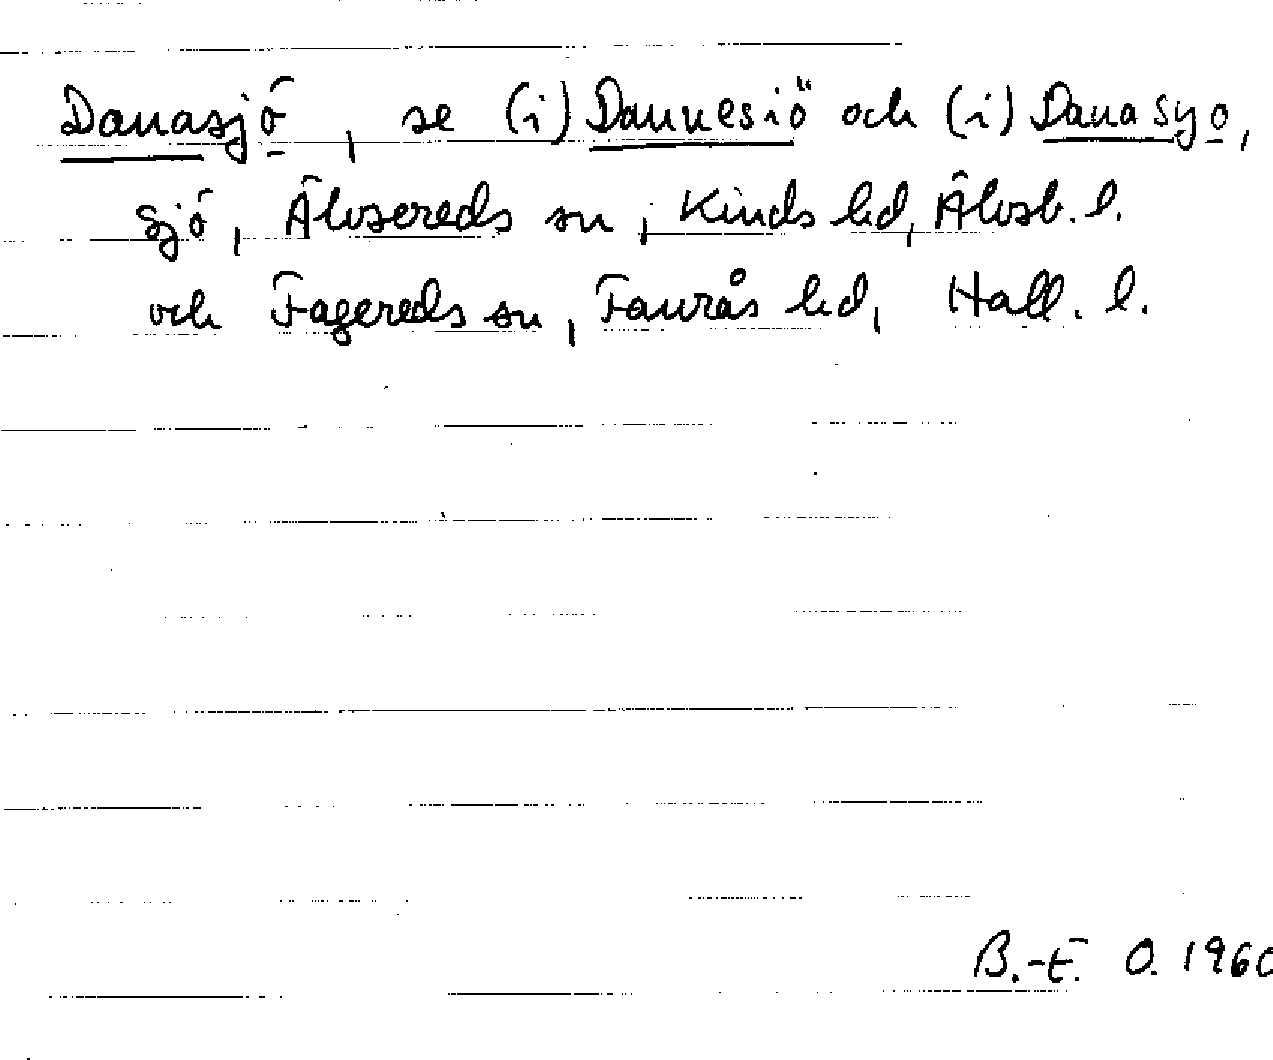 Danasjö, se (i) Dannesiö och (i) Danasyo,
sjö, Älvsereds sn, Kinds hd, Älvsb. l.
och Fagereds sn, Faurås hd, Hall. l.
B.-E. O. 1960